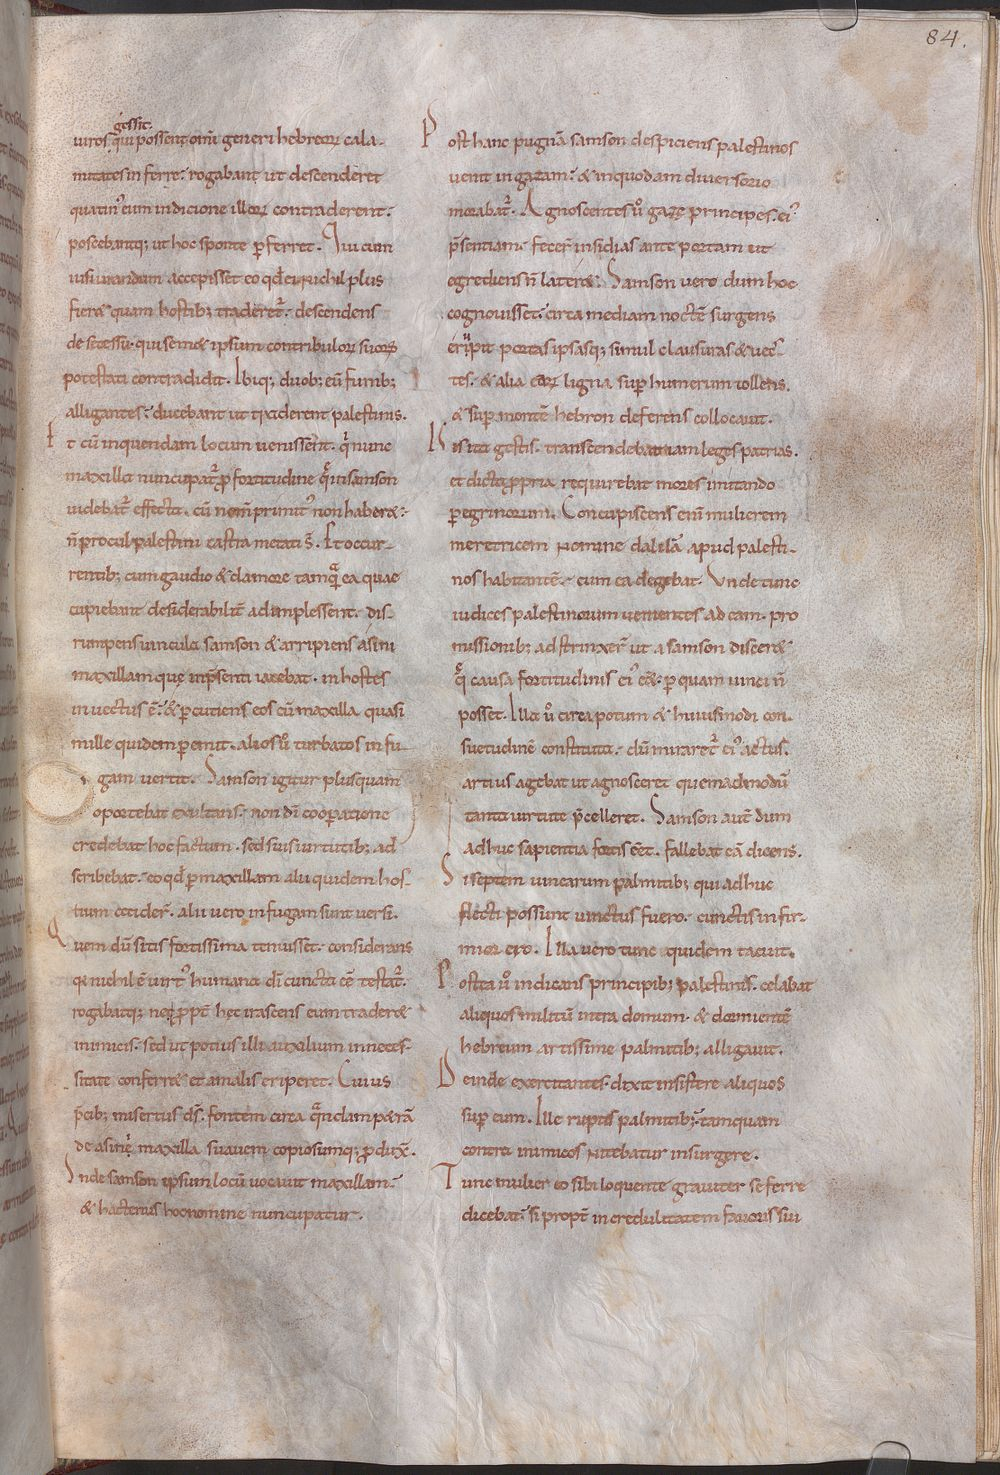 84.
gessit.
uiros. qui possent omī generi hebreoꝝ cala-
mitates inferre. rogabant ut descenderet
quatin᷒ eum indicione illoꝝ contraderent.
poscebantq; ut hoc sponte ꝑferret. Qui cum
iusiurandum accepisset eo qd ei nichil plus
fieret quam hostib; traderet᷑. descendens
de scissu. qui semet ipsum contribuloꝝ suoꝝ
potestati contradidit. Ibiq; duob; eū funib;
alligantes. ducebant ut traderent palestinis.
Et cū inquendam locum uenissent. qͥ nunc
maxilla nuncupat᷑. ꝓ fortitudine quā samson
uidebat᷑ effecta. cū nom̄ primit᷒ non haberet.
n̄ procul palestini castra metati s̄. Et occur-
rentib; cum gaudio & clamore tamqͣ ea quae
cupiebant desiderabilit̄ adimplessent. dis-
rumpens uincula samson & arripiens asini
maxillam quę inp̄senti iacebat. in hostes
inuectus ē. & ꝑcutiens eos cū maxilla quasi
mille quidem ꝑemit. alios uͦ turbatos in fu-
gam uertit. Samson igitur plusquam
oportebat exultans. non dī cooꝑatione
credebat hoc factum. sed suis uirtutib; ad
scribebat. eo qd ꝑ maxillam alii quidem hos-
tium occider̄. alii uero in fugam sunt uersi.
Quem dū sitis fortissima tenuisset. considerans
qͣ nichil ē uirt᷒ humana dī cuncta eē testat᷑.
rogabatq; neq; ꝓpt̄ hęc irascens eum traderet
inimicis. sed ut potius illi auxilium inneces-
sitate conferret et amalis eriperet. Cuius
p̄cib; misertus ds̄. fontem circa qͣndam petrā
de asinę maxilla suauem copiosumq; ꝓduxit.
Vnde samson ipsum locū uocauit maxillam.
& hactenus hoc nomine nuncupatur.
Post hanc pugnā samson despiciens palestinos
uenit in gazam. & inquodam diuersorio
morabat᷑. Agnoscentes uͦ gazę principes. ei᷒
p̄sentiam. fecer̄ insidias ante portam ut
egrediens n̄ lateret. Samson uero dum hoc
cognouisset. circa mediam noctē surgens
eripit portas ipsasq; simul clausuras & uec-
tes. & alia eoꝝ ligna suꝑ humerum tollens.
& suꝑ montē hebron deferens collocauit.
His ita gestis. transcendebat iam leges patrias.
et dicta ꝓpria requirebat mores imitando
ꝑegrinorum. Concupiscens enī mulierem
meretricem nomine dalilā apud palesti-
nos habitantē. cum ea degebat. Vnde tunc
iudices palestinorum uenientes ad eam. pro
missionib; adstrinxer̄ ut a samson disceret
qͣ causa fortitudinis ei᷒ eēt. ꝑ quam uinci n̄
posset. Illa uͦ circa potum & huiusmodi con-
suetudinē constituta. dū miraret᷑ ei᷒ actus.
artius agebat ut agnosceret quemadmodū
tanta uirtute p̄celleret. Samson aut̄ dum
adhuc sapientia fortis eēt. fallebat eā dicens.
Si septem uinearum palmitib; qui adhuc
flecti possunt uinctus fuero. cunctis infir-
mior ero. Illa uero tunc quidem tacuit.
Postea uͦ indicans principib; palestinis. celabat
aliquos militū intra domum. & dormientē
hebreum artissime palmitib; alligauit.
Deinde excitantes. dixit insistere aliquos
suꝑ eum. Ille ruptis palmitib; tamquam
contra inimicos nitebatur insurgere.
Tunc mulier eo sibi loquente grauiter se ferre
dicebat. si propt̄ incredulitatem fauoris sui